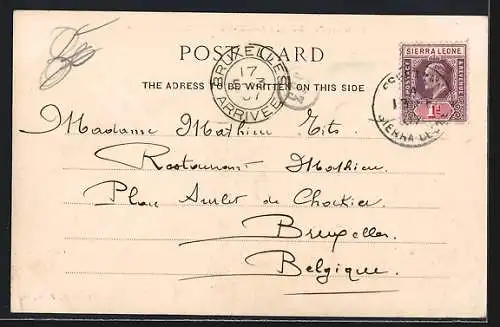 POST CARD
THE ADRESS TO BE WRITTEN ON THIS SIDE
BRUXELLES
17
07
ARRIVEE
SIERRA LEONE
POSTAGE
REVENUE
1d
SIERRA LEONE
Madame Mathieu Tits.
Restaurant Mathieu
Place Surlet de Chockier
Bruxelles
Belgique.